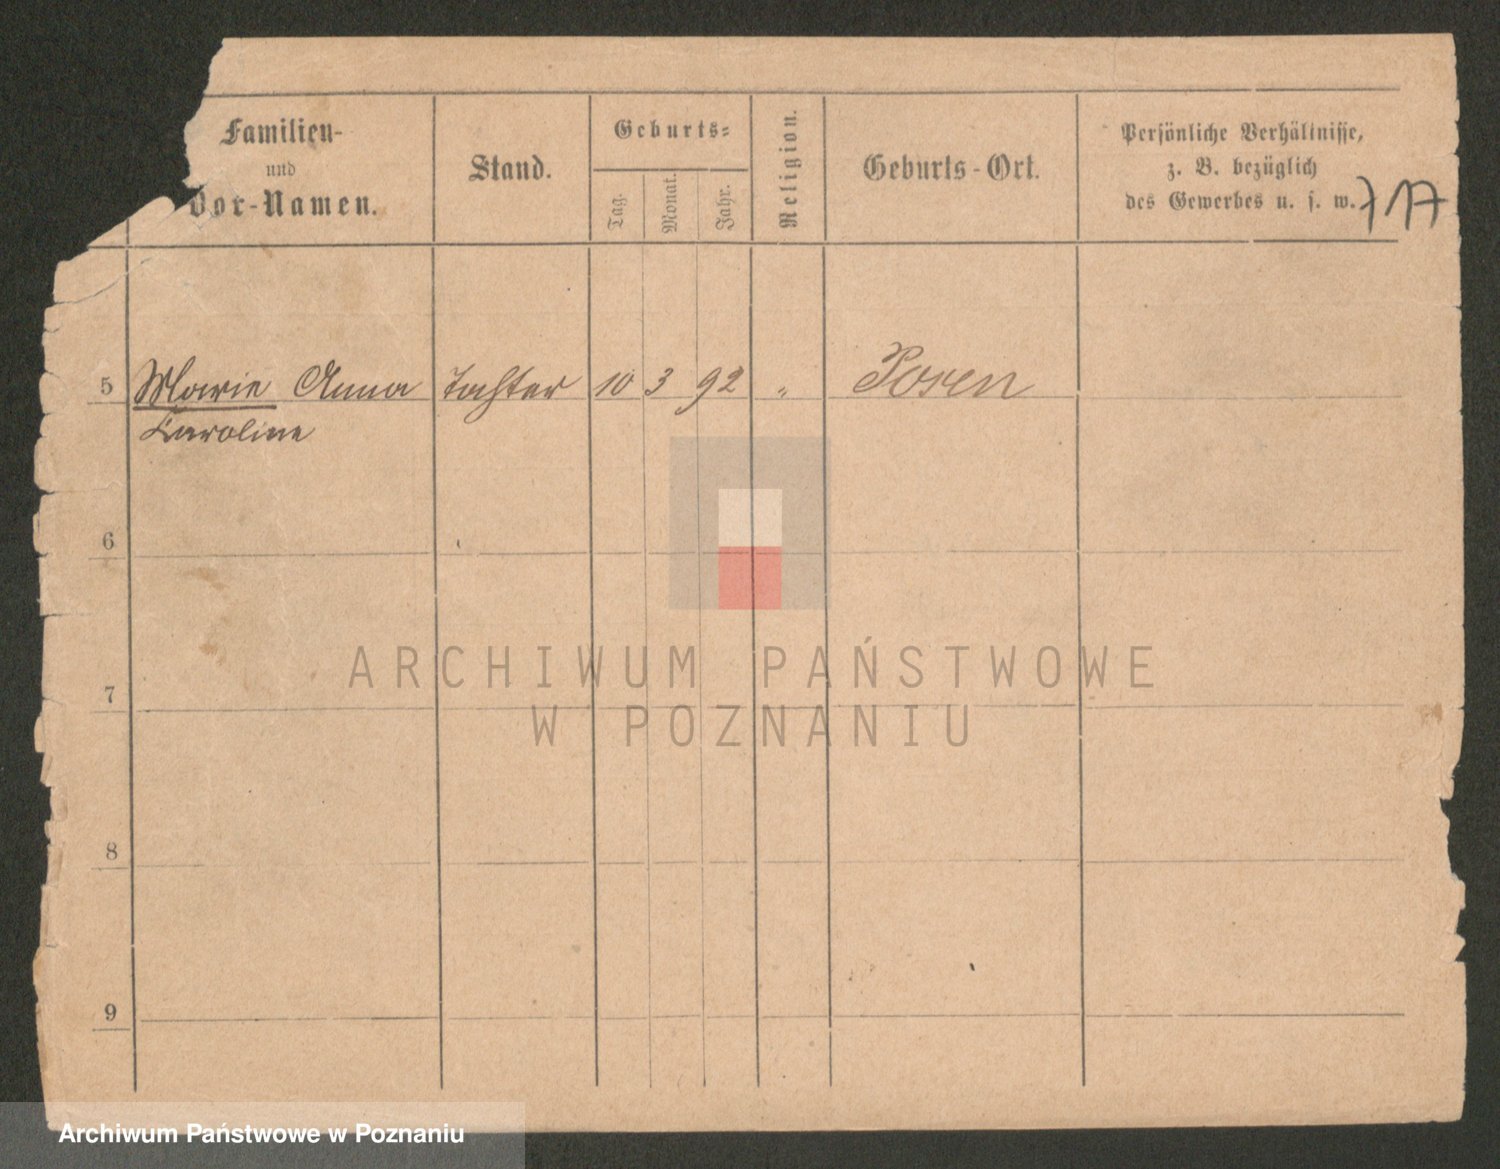 Familien-
und
Vor-Namen.
Stand.
Geburts-
Tag.
Monat.
Jahr.
Religion.
Geburts-Ort.
Persönliche Verhältnisse,
z. B. bezüglich
des Gewerbes u. s. w.
717
5 Marie Anna Tochter 10 3 92 „ Posen
Caroline
6
ARCHIWUM PAŃSTWOWE
7
W POZNANIU
8
9
Archiwum Państwowe w Poznaniu